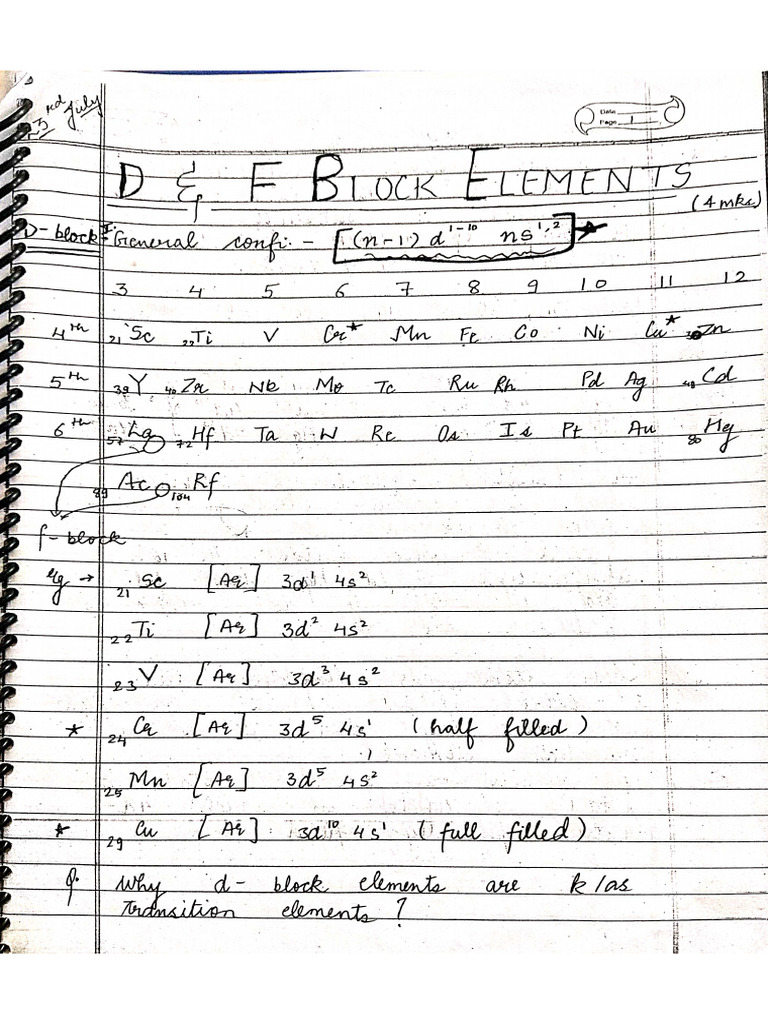 3rd July
Date
Page 1
D & F BLOCK ELEMENTS
(4 mks)
D-block :- General confi. - [(n-1) d¹⁻¹⁰ ns¹,²]
3 4 5 6 7 8 9 10 11 12
4th ₂₁Sc ₂₂Ti V Cr* Mn Fe Co Ni Cu* ₃₀Zn
5th ₃₉Y ₄₀Zr Nb Mo Tc Ru Rh Pd Ag ₄₈Cd
6th ₅₇La ₇₂Hf Ta W Re Os Is Pt Au ₈₀Hg
₈₉Ac ₁₀₄Rf
f-block
eg → ₂₁Sc [Ar] 3d¹ 4s²
₂₂Ti [Ar] 3d² 4s²
₂₃V [Ar] 3d³ 4s²
* ₂₄Cr [Ar] 3d⁵ 4s¹ (half filled)
₂₅Mn [Ar] 3d⁵ 4s²
* ₂₉Cu [Ar] 3d¹⁰ 4s¹ (full filled)
Q. Why d-block elements are k/as
transition elements?